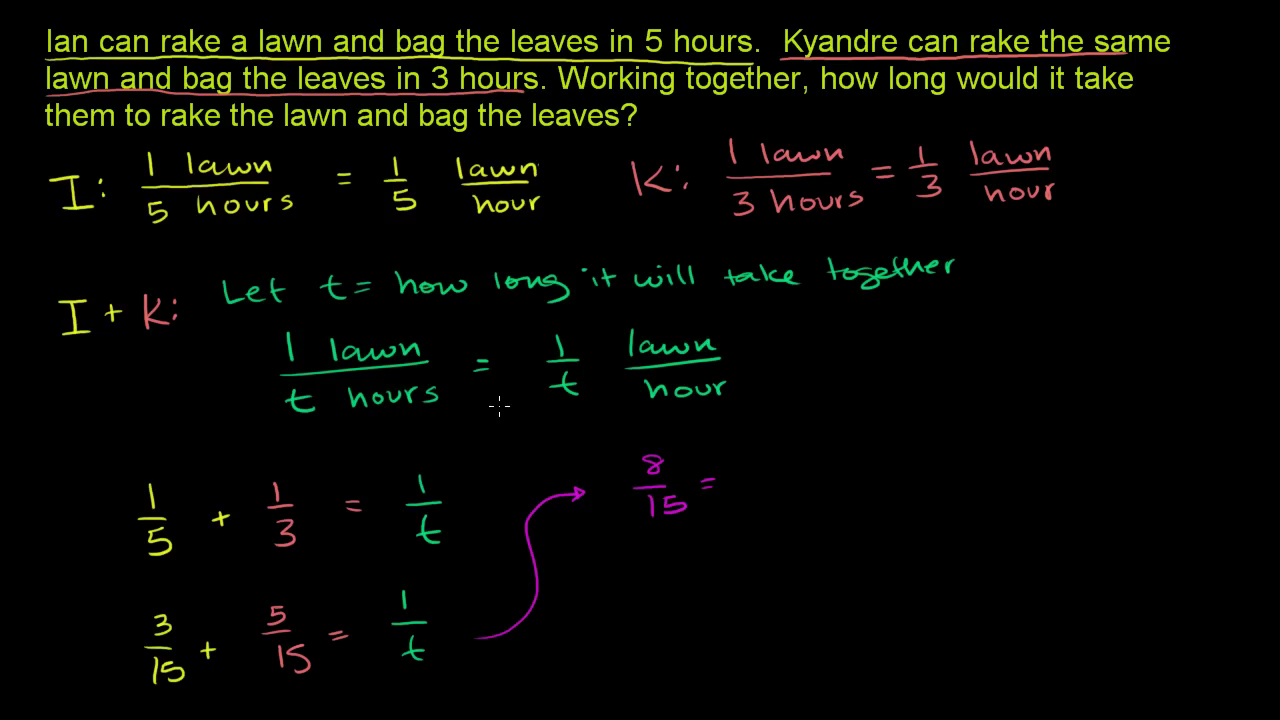 Ian can rake a lawn and bag the leaves in 5 hours. Kyandre can rake the same
lawn and bag the leaves in 3 hours. Working together, how long would it take
them to rake the lawn and bag the leaves?
I: 1 lawn / 5 hours = 1/5 lawn/hour K: 1 lawn / 3 hours = 1/3 lawn/hour
I + K: Let t = how long it will take together
1 lawn / t hours = 1/t lawn/hour
1/5 + 1/3 = 1/t
8/15 =
3/15 + 5/15 = 1/t